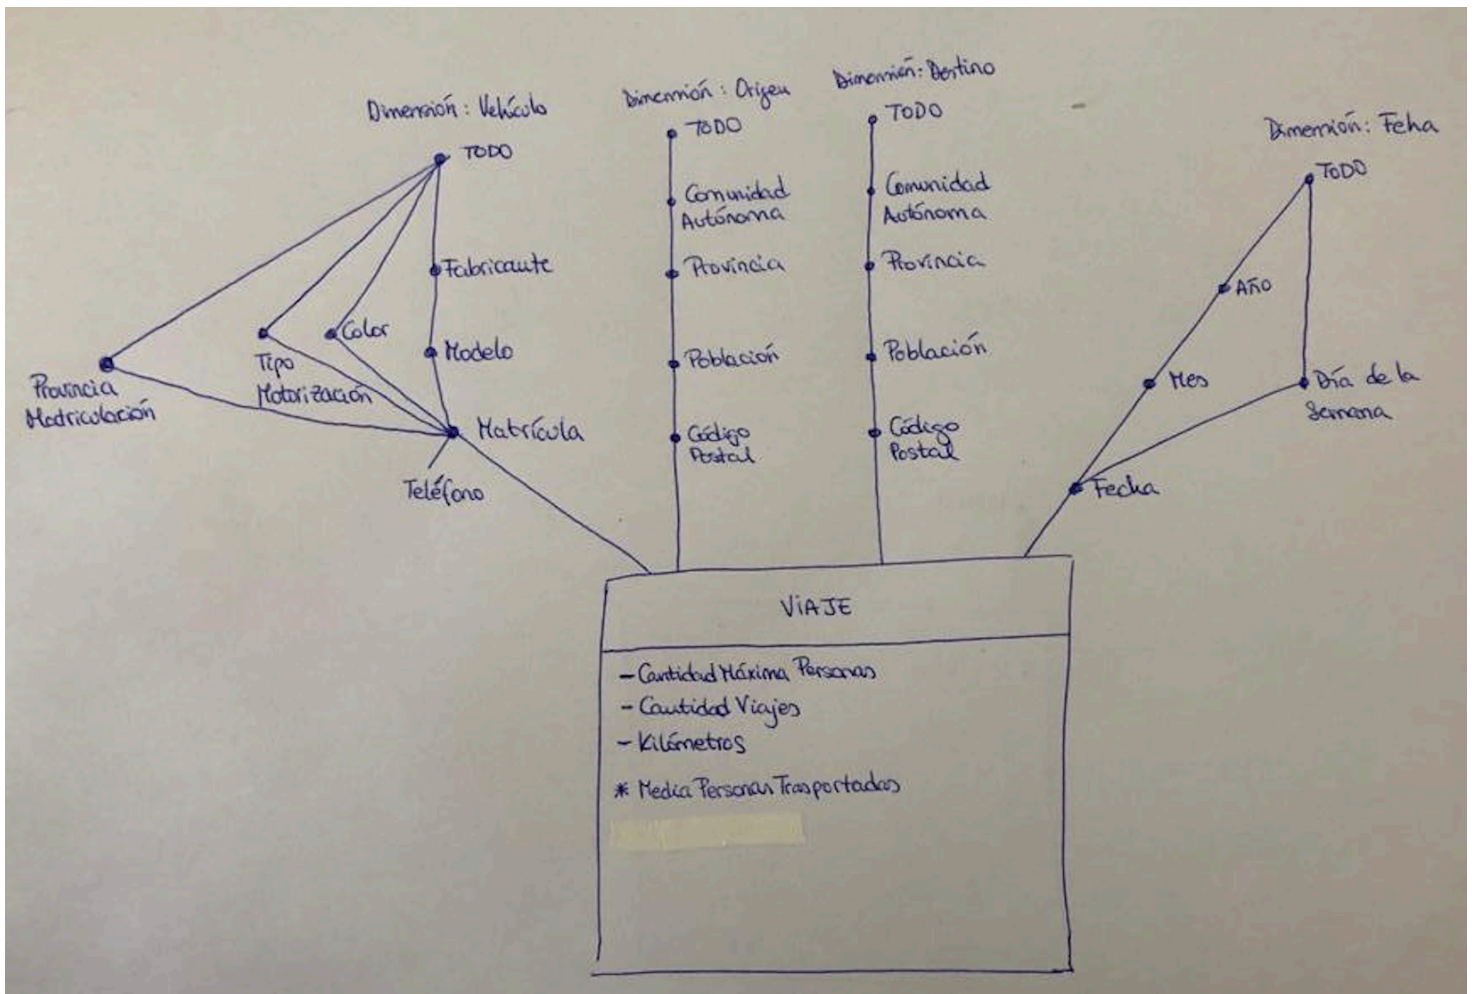 Dimensión: Vehículo
TODO
Fabricante
Color
Modelo
Tipo
Motorización
Provincia
Matriculación
Matrícula
Teléfono
Dimensión: Origen
TODO
Comunidad
Autónoma
Provincia
Población
Código
Postal
Dimensión: Destino
TODO
Comunidad
Autónoma
Provincia
Población
Código
Postal
Dimensión: Feha
TODO
AÑO
Mes
Día de la
Semana
Fecha
VIAJE
- Cantidad Máxima Personas
- Cantidad Viajes
- Kilómetros
* Media Personas Trasportadas